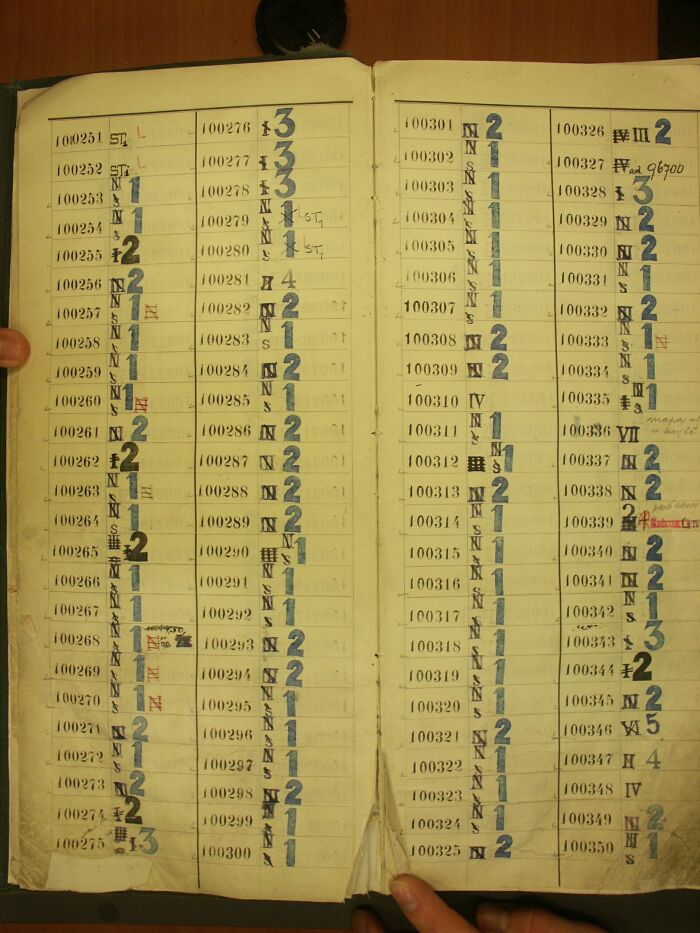 100251 STi L
100252 STi L
100253 N s 1
100254 N s 1
100255 I 2
100256 N 2
100257 N s 1
100258 N s 1
100259 N s 1
100260 N s 1
100261 N 2
100262 I 2
100263 N s 1
100264 N s 1
100265 III I 2
100266 N s 1
100267 N s 1
100268 N s 1
100269 N s 1
100270 N s 1
100271 N 2
100272 N s 1
100273 N 2
100274 I 2
100275 III I 3
100276 I 3
100277 I 3
100278 I 3
100279 N s 1 ST1
100280 N s 1 ST1
100281 II 4
100282 N 2
100283 N s 1
100284 N 2
100285 N s 1
100286 N 2
100287 N 2
100288 N 2
100289 N 2
100290 III N s 1
100291 N s 1
100292 N s 1
100293 N 2
100294 N 2
100295 N s 1
100296 N s 1
100297 N s 1
100298 N 2
100299 N s 1
100300 N s 1
100301 N 2
100302 N s 1
100303 N s 1
100304 N s 1
100305 N s 1
100306 N s 1
100307 N s 1
100308 N 2
100309 N 2
100310 IV
100311 N s 1
100312 III N s 1
100313 N 2
100314 N s 1
100315 N s 1
100316 N s 1
100317 N s 1
100318 N s 1
100319 N s 1
100320 N s 1
100321 N 2
100322 N s 1
100323 N s 1
100324 N s 1
100325 N 2
100326 IV III 2
100327 IV ad 96700
100328 I 3
100329 N 2
100330 N 2
100331 N s 1
100332 N 2
100333 N s 1
100334 N s 1
100335 I N s 1
100336 VII mapa
100337 N 2
100338 N 2
100339 2
100340 N 2
100341 N 2
100342 N s 1
100343 I 3
100344 I 2
100345 N 2
100346 VI 5
100347 II 4
100348 IV
100349 N 2
100350 N s 1